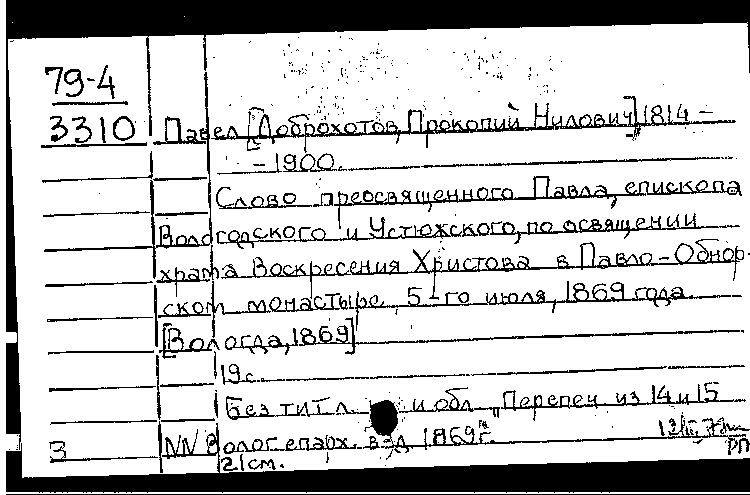 79-4
3310 Павел [Доброхотов, Прокопий Нилович], 1814 –
– 1900.
Слово преосвященного Павла, епископа
Вологодского и Устюжского, по освящении
храма Воскресения Христова в Павло-Обнор-
ском монастыре, 5-го июля, 1869 года
[Вологда, 1869]
19 с.
Без тит. л. и обл. „Перепеч из 14 и 15
3 NN Волог. епарх. вед. 1869 г."
21 см.
РП